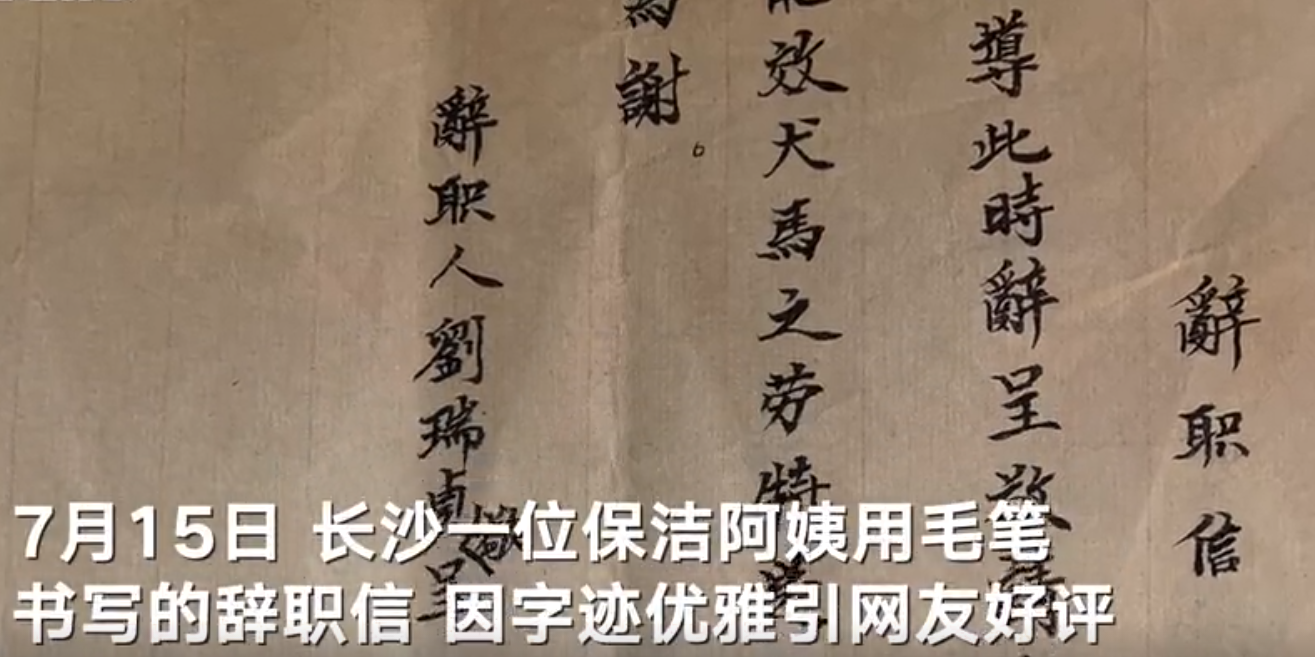 辭职信
導此時辭呈敬請
效犬馬之劳特
為謝。
辭职人劉瑞貞敬呈
7月15日 长沙一位保洁阿姨用毛笔
书写的辞职信 因字迹优雅引网友好评